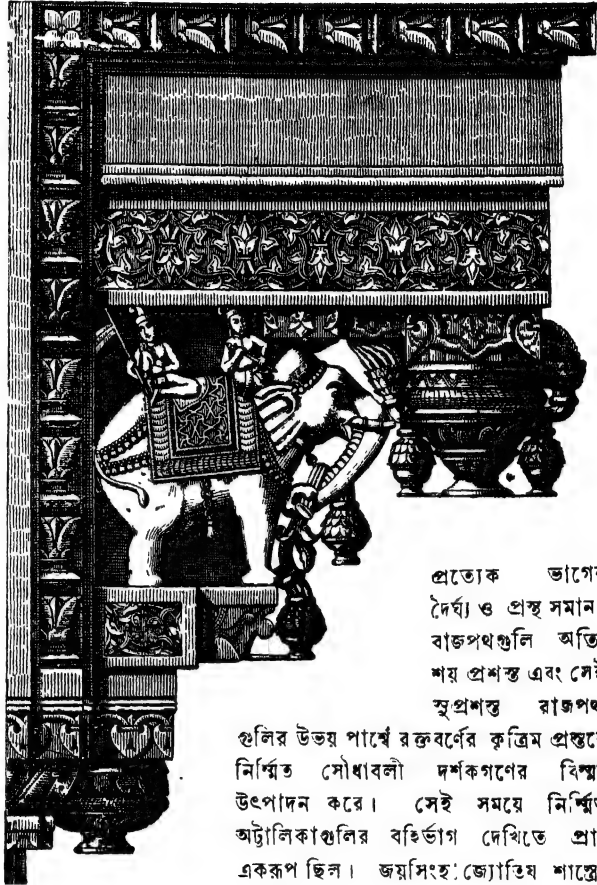 প্রত্যেক ভাগের
দৈর্ঘ্য ও প্রস্থ সমান
বাজপথগুলি অতি
শয় প্রশস্ত এবং সেই
সুপ্রশস্ত রাজপথ
গুলির উভয় পার্শ্বে রক্তবর্ণের কৃত্রিম প্রস্তরে
নির্ম্মিত সৌধাবলী দর্শকগণের বিস্ময়
উৎপাদন করে। সেই সময়ে নির্ম্মিত
অট্টালিকাগুলির বহির্ভাগ দেখিতে প্রা
একরূপ ছিল। জয়সিংহ জ্যোতিষ শাস্ত্রে